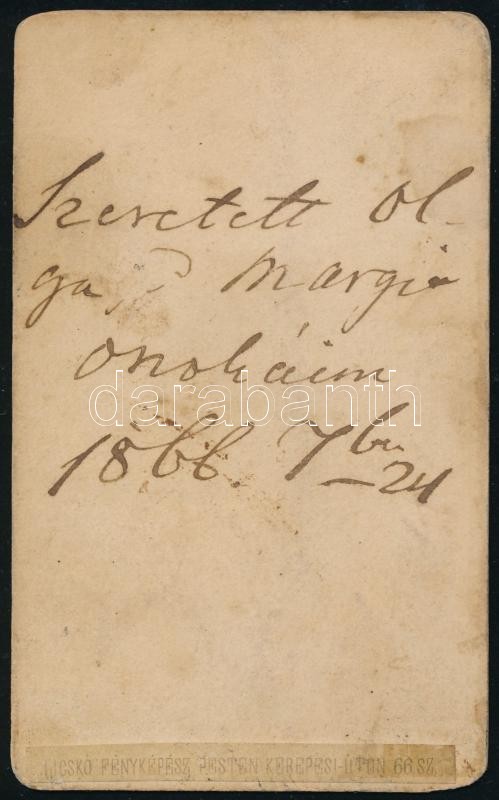 Szeretett Ol-
ga, Margit
onokáim
darabanth
1866. 7br 24
LICSKÓ FÉNYKÉPÉSZ PESTEN KEREPESI-ÚTON 66 SZ.